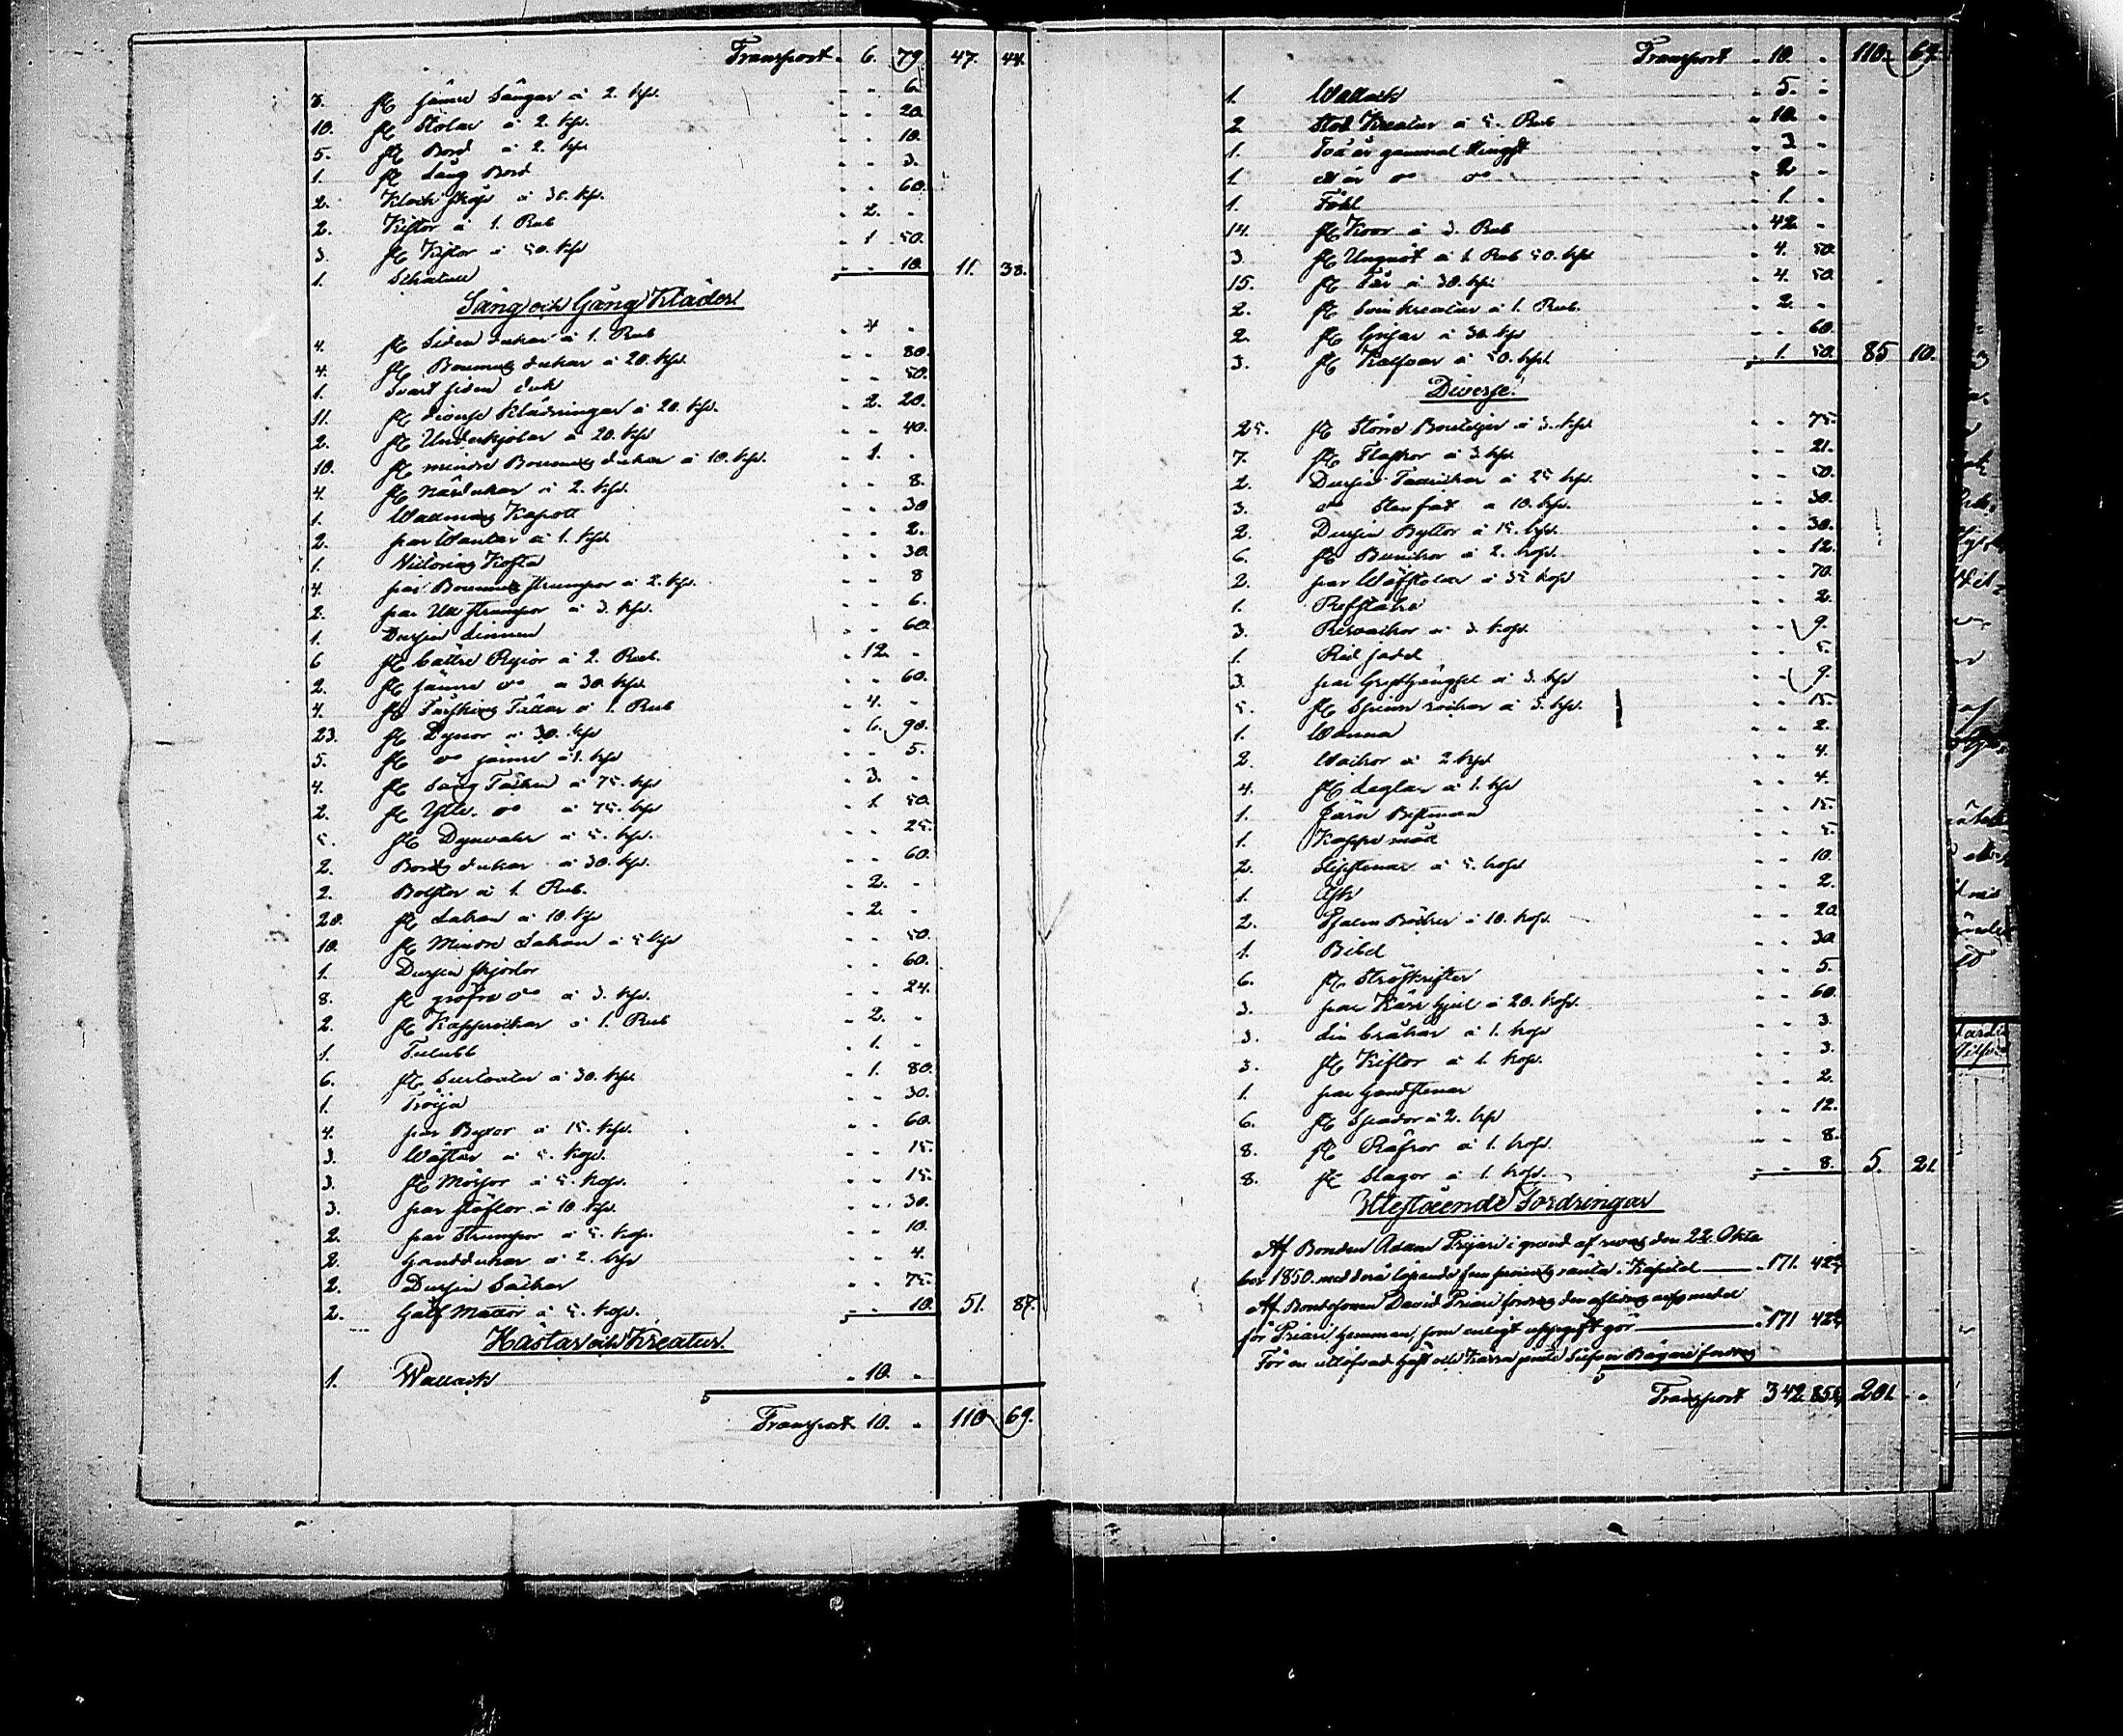 Transport 6. 79. 47. 44.
3. st. sämre Sängar à 2. kop. 6.
10. st. Stolar à 2. kop. 20.
5. st. Bord à 2. kop. 10.
1. st. Lång Bord 3.
2. Klock skåp à 30. kop. 60.
2. Kistor à 1. Rub 2. -
3. st. Kistor à 50. kop 1 50.
1. Schatull 10. 11. 38.
Säng och Gång Kläder.
4. st. Siden dukar à 1. Rub 4 -
4. st. Bomulls dukar à 20. kop. 80.
1. Svart siden duk 50.
11. st. diverse Klädningar à 20. kop. 2. 20.
2. st. Underkjolar à 20. kop 40.
10. st. mindre Bomulls dukar à 10. kop. 1. -
4. st. näsdukar à 2. kop. 8.
1. Wallmans Kapott 30
2. par Wantar à 1. kop. 2.
1. Kofta 30.
4. par Bomulls strumpor à 2. kop. 8
2. par Ull strumpor à 3. kop. 6.
1. Dussin Linnen 60.
6 st. bättre Ryior à 2. Rub. 12. -
2. st. sämre do à 30. kop. 60.
4. st. Fårskins Fällar à 1. Rub 4. -
23. st. Dynor à 30. kop 6. 90.
5. st. do sämre à 1. kop 5.
4. st. Säng Täcken à 75. kop 3. -
2. st. Ylle do à 75. kop 1. 50.
5. st. Dynvahr à 5. kop. 25.
2. Bords dukar à 30. kop. 60.
2. Bolster à 1. Rub. 2. -
20. st. Lakan à 10. kop 2. -
10. st. Mindre Lakan à 5 kop 50.
1. Dussin skjortor 60.
8. st. gröfre do à 3. kop. 24.
2. st. Kapprockar à 1. Rub 2. -
1. Tulubb 1. -
6. st. Surtouter à 30. kop. 1. 80.
1. Tröija 30.
4. par Byxor à 15. kop. 60.
3. Wästar à 5. kop. 15.
3. st. Mössor à 5. kop. 15.
3. par stöflor à 10. kop. 30.
2. par Strumpor à 5. kop. 10.
2. Handdukar à 2. kop 4.
2. Dussin Säckar 75.
2. Gålf Mattor à 5. kop. 10. 51. 87.
Hästar och Kreatur.
1. Wallack 10. -
Transport 10. - 110 69.
Transport 10. - 110. 69.
1. Wallack 5. -
2. Stod Kreatur à 5. Rub 10. -
1. Två år gammal Hingst 3 -
1. ett år do do 2 -
1. Föhl 1. -
14. st. Koor à 3. Rub 42. -
3. st. Ungnöt à 1. Rub 50. kop. 4. 50.
15. st. Får à 30. kop. 4. 50.
2. st. Svin kreatur à 1. Rub. 2. -
2. st. Grisar à 30. kop 60.
3. st. Kalfvar à 50. kop. 1. 50. 85 10.
Diverse.
25. st. Större Bouteljer à 3. kop. 75.
7. st. Flaskor à 3. kop. 21.
2. Dussin Tallrickar à 25 kop. 50.
3. do Stenfat à 10. kop. 30.
2. Dussin Byttor à 15. kop. 30.
6. st. Bunckor à 2. kop. 12.
2. par Wäfstolar à 35 kop 70.
1. 2.
3. à 3. kop. 9.
1. Rid sadel 5.
3. par à 3. kop 9.
5. st. Spinn rockar à 3. kop. 15.
1. Wanna 2.
2. à 2 kop 4.
4. st. Leglar à 1. kop 4.
1. Järn Besman 15.
1. Kappe mått 5.
2. Slipstenar à 5. kop 10.
1. Ask 2.
2. Psalm Böcker à 10. kop. 20
1. Bibel 30
6. st. Ströskrifter 5.
3. par Kärr hjul à 20. kop. 60.
3. Lin bråkar à 1. kop 3.
3. st. Kistor à 1. kop. 3.
1. par Handstenar 2.
6. st. Spador à 2. kop 12.
8. st. Räfsor à 1. kop. 8.
8. st. Slagor à 1. kop. 8. 5. 21
Utestående Fordringar
Af Bonden Adam Prijari i grund af revers den 22. Okto
ber 1850. med derå löpande fem procents ränta, Kapital 171. 42
Af Bondesonen David Priari fordras
för Priari Hemman, som enligt uppgift gör 171 42
För en utlofvad Häst och Kärra
Transport 342. 85. 201. -